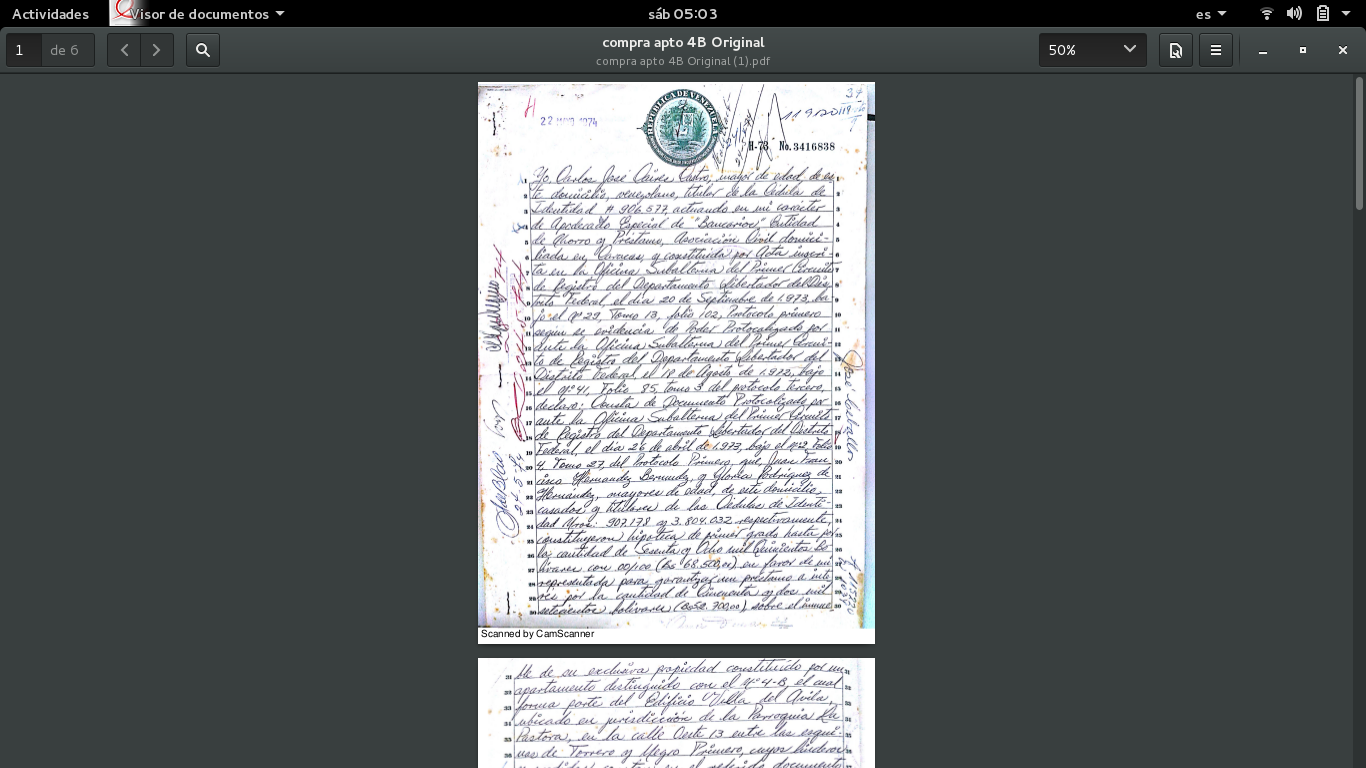 Actividades
Visor de documentos
sáb 05:03
es
1 de 6
compra apto 4B Original
compra apto 4B Original (1).pdf
50%
22 1974
REPUBLICA DE VENEZUELA
H-73 No. 3416838
Yo, Carlos José Castro, mayor de edad, de es-
te domicilio, venezolano, titular de la Cédula de
Identidad # 906.577, actuando en mi carácter
de Apoderado Especial de "Bancarios", Entidad
de Ahorro y Préstamo, Asociación Civil domici-
liada en Caracas, y constituida por Acta inscri-
ta en la Oficina Subalterna del Primer Circuito
de Registro del Departamento Libertador del Dis-
trito Federal, el día 20 de Septiembre de 1.973, ba-
jo el Nº 29, Tomo 13, folio 102, Protocolo primero
según se evidencia de Poder Protocolizado por
ante la Oficina Subalterna del Primer Circui-
to de Registro del Departamento Libertador del
Distrito Federal, el 18 de Agosto de 1.972, bajo
el Nº 41, Folio 85, tomo 3 del protocolo tercero,
declaro: Consta de Documento Protocolizado por
ante la Oficina Subalterna del Primer Circuito
de Registro del Departamento Libertador del Distrito
Federal, el día 26 de abril de 1.973, bajo el Nº 2, Folio
4, Tomo 27, del Protocolo Primero, que, Juan Fran-
cisco Hernandez Bermudez, y Gloria Rodriguez de
Hernández, mayores de edad, de este domicilio,
casados y titulares de las Cédulas de Identi-
dad Nros: 907.178 y 3.804.032 respectivamente,
constituyeron hipoteca de primer grado hasta por
la cantidad de Sesenta y Ocho mil Quinientos Bo-
lívares con 00/100 (Bs 68.500,00) en favor de mi
representada para garantizar un préstamo a inte-
rés por la cantidad de Cincuenta y dos mil
setecientos bolívares (Bs 52.700,00), sobre el inmue-
Scanned by CamScanner
ble de su exclusiva propiedad constituido por un
apartamento distinguido con el Nº 4-B, el cual
forma parte del Edificio Villa del Avila,
ubicado en jurisdicción de la Parroquia La
Pastora, en la calle Oeste 13 entre las esqui-
nas de Torrero y Negro Primero, cuyos linderos
el referido documento